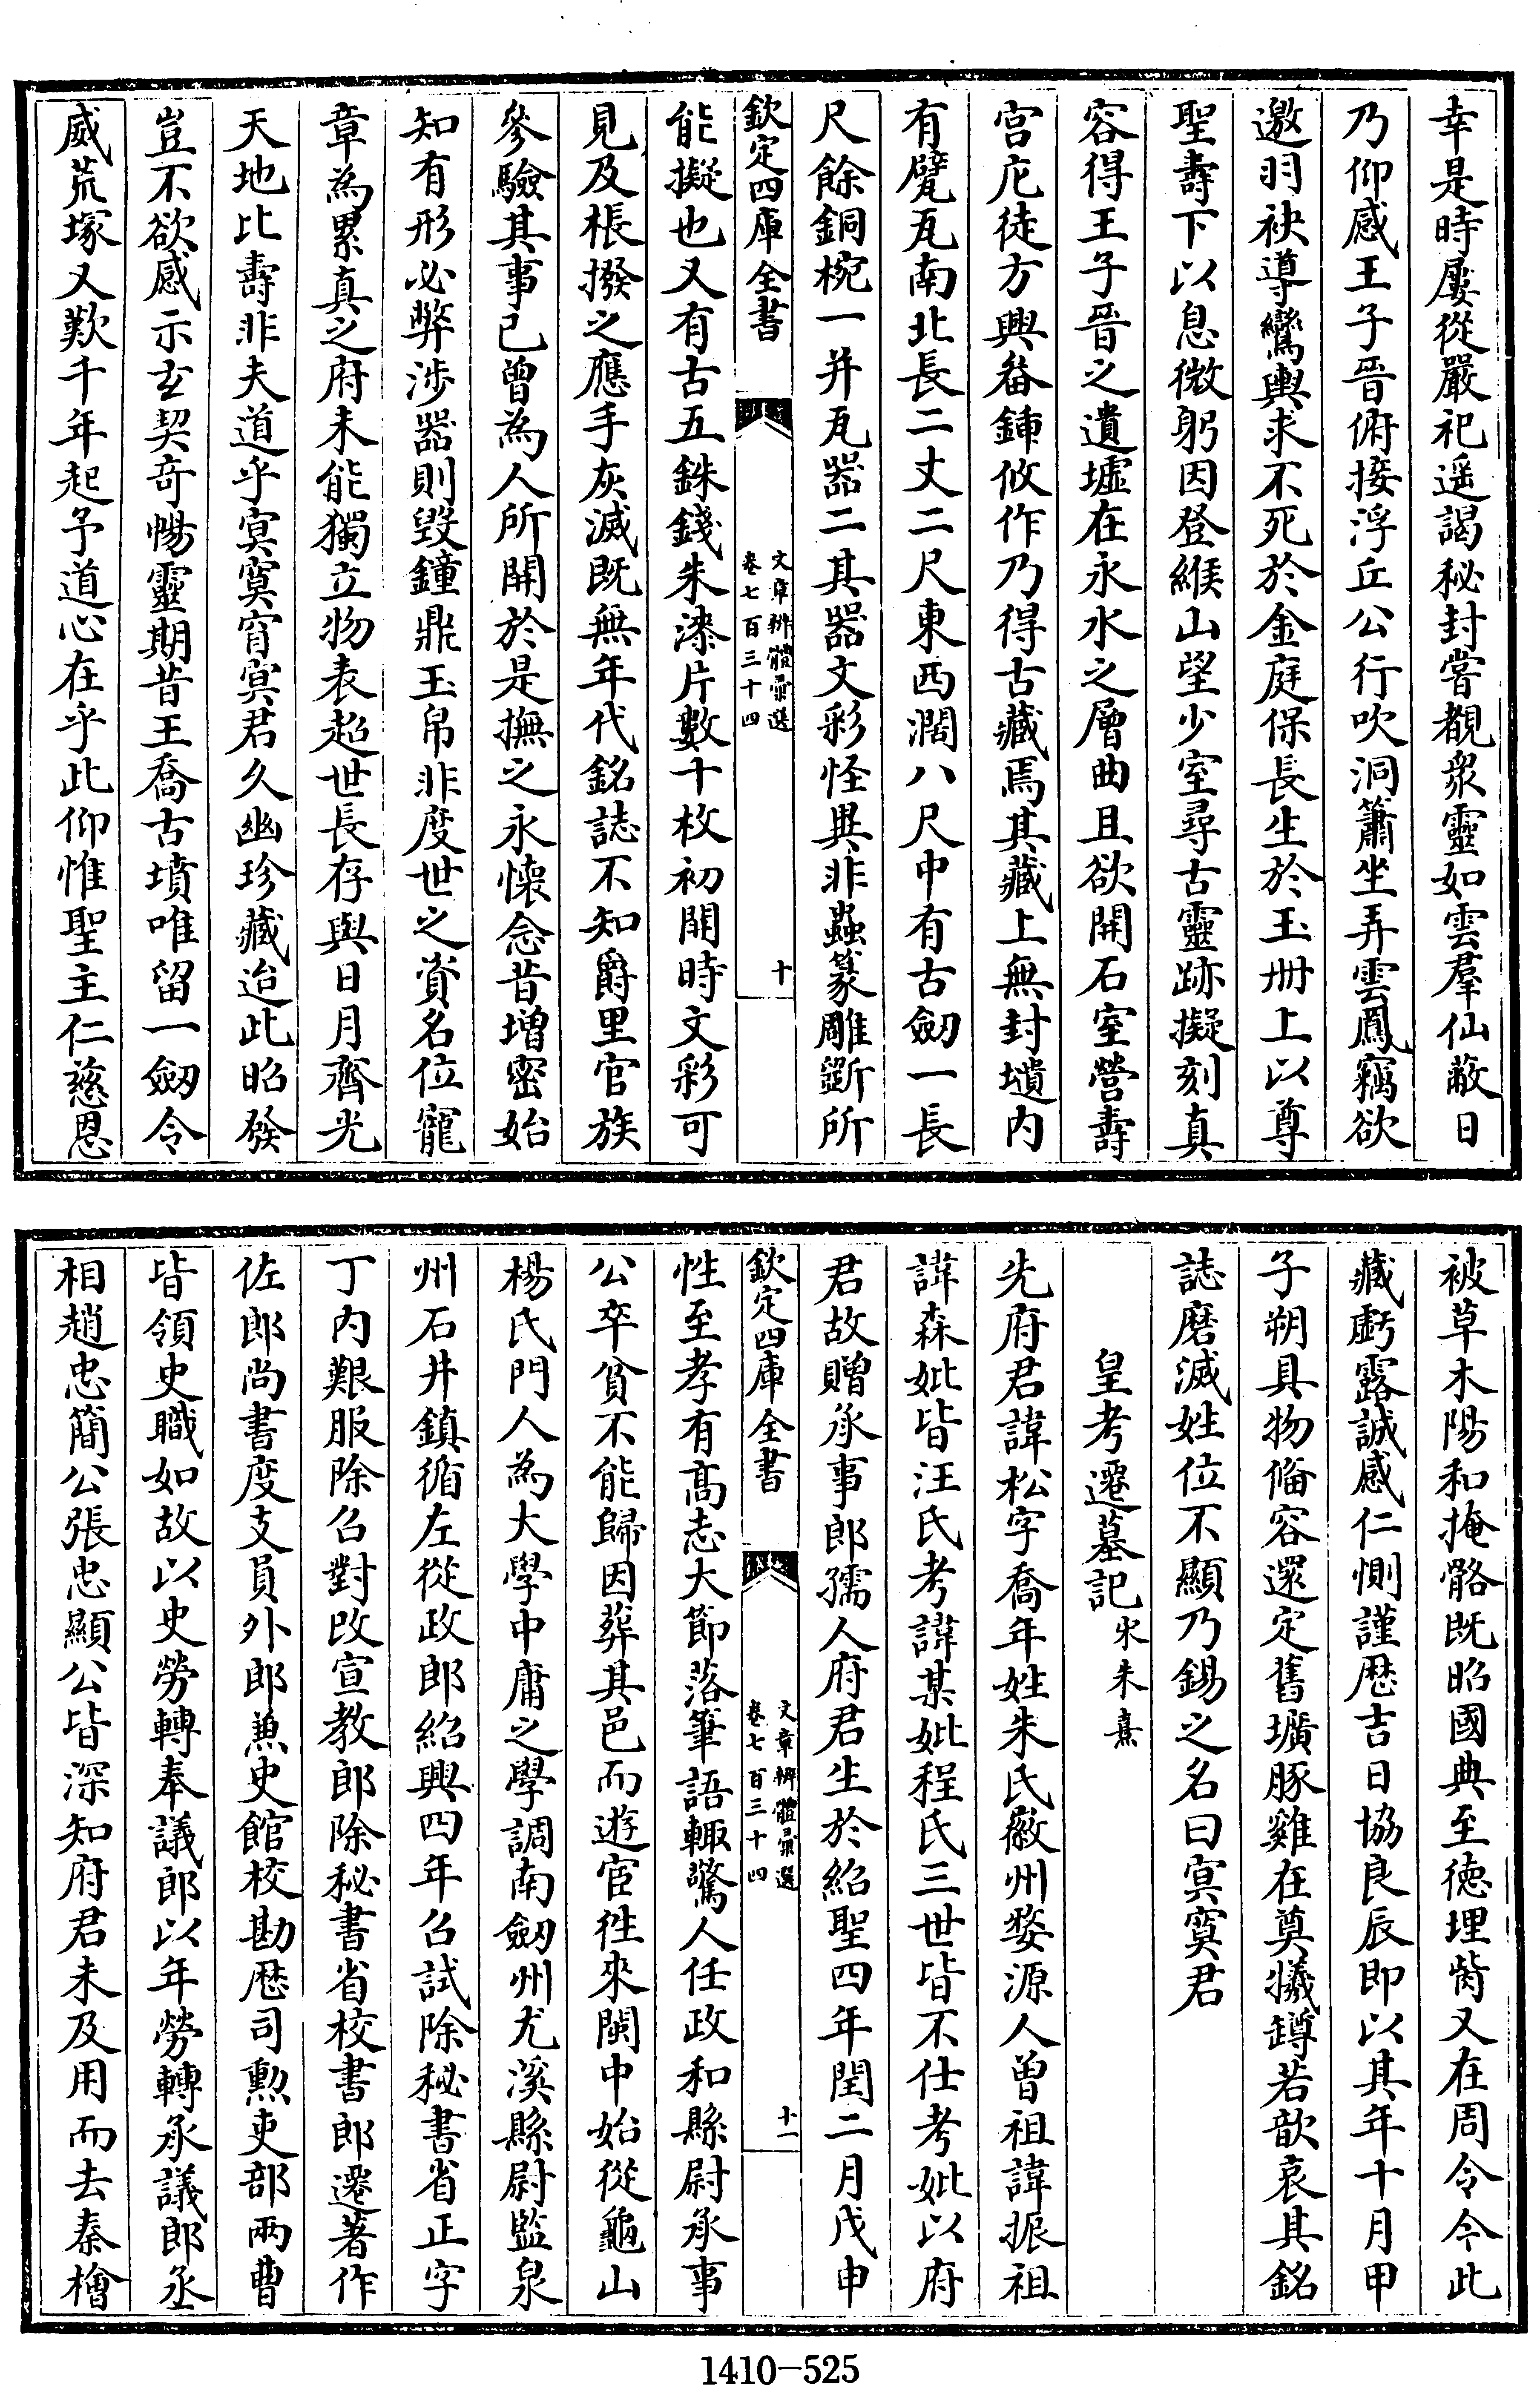 幸是時屢從嚴祀遥謁秘封嘗覩衆靈如雲羣仙蔽日
乃仰感王子晉俯接浮丘公行吹洞簫坐弄雲鳳竊欲
邀羽袂導鸞輿求不死於金庭保長生於玉冊上以尊
聖壽下以息微躬因登緱山望少室尋古靈跡擬刻真
容得王子晉之遺墟在永水之層曲且欲開石室營壽
宫庀徒方興畚鍤攸作乃得古藏焉其藏上無封壝内
有甓瓦南北長二丈二尺東西濶八尺中有古劒一長
尺餘銅椀一并瓦器二其器文彩怪異非蟲篆雕斵所
欽定四庫全書
文章辨體彚選
卷七百三十四
十
能擬也又有古五銖錢朱漆片數十枚初開時文彩可
見及棖撥之應手灰滅既無年代銘誌不知爵里官族
參驗其事已曾為人所開於是撫之永懷念昔増密始
知有形必弊涉器則毀鐘鼎玉帛非度世之資名位寵
章為累真之府未能獨立物表超世長存與日月齊光
天地比壽非夫道乎冥寞窅冥君久幽珍藏迨此昭發
豈不欲感示玄契奇暢靈期昔王喬古墳唯留一劒令
威荒塚又歎千年起予道心在乎此仰惟聖主仁慈恩
被草木陽和掩骼既昭國典至徳埋胔又在周令令此
藏虧露誠感仁惻謹歴吉日協良辰即以其年十月甲
子朔具物偹容還定舊壙豚雞在奠犧罇若歆哀其銘
誌磨滅姓位不顯乃錫之名曰冥寞君
皇考遷墓記宋朱熹
先府君諱松字喬年姓朱氏徽州婺源人曽祖諱振祖
諱森妣皆汪氏考諱某妣程氏三世皆不仕考妣以府
君故贈承事郎孺人府君生於紹聖四年閏二月戊申
欽定四庫全書
文章辨體彚選
卷七百三十四
十一
性至孝有髙志大節落筆語輙驚人任政和縣尉承事
公卒貧不能歸因葬其邑而遊宦徃來閩中始從龜山
楊氏門人為大學中庸之學調南劒州尤溪縣尉監泉
州石井鎮循左從政郎紹興四年召試除秘書省正字
丁内艱服除召對改宣教郎除秘書省校書郎遷著作
佐郎尚書度支員外郎兼史館校勘歴司勲吏部兩曹
皆領史職如故以史勞轉奉議郎以年勞轉承議郎丞
相趙忠簡公張忠顯公皆深知府君未及用而去秦檜
1410-525